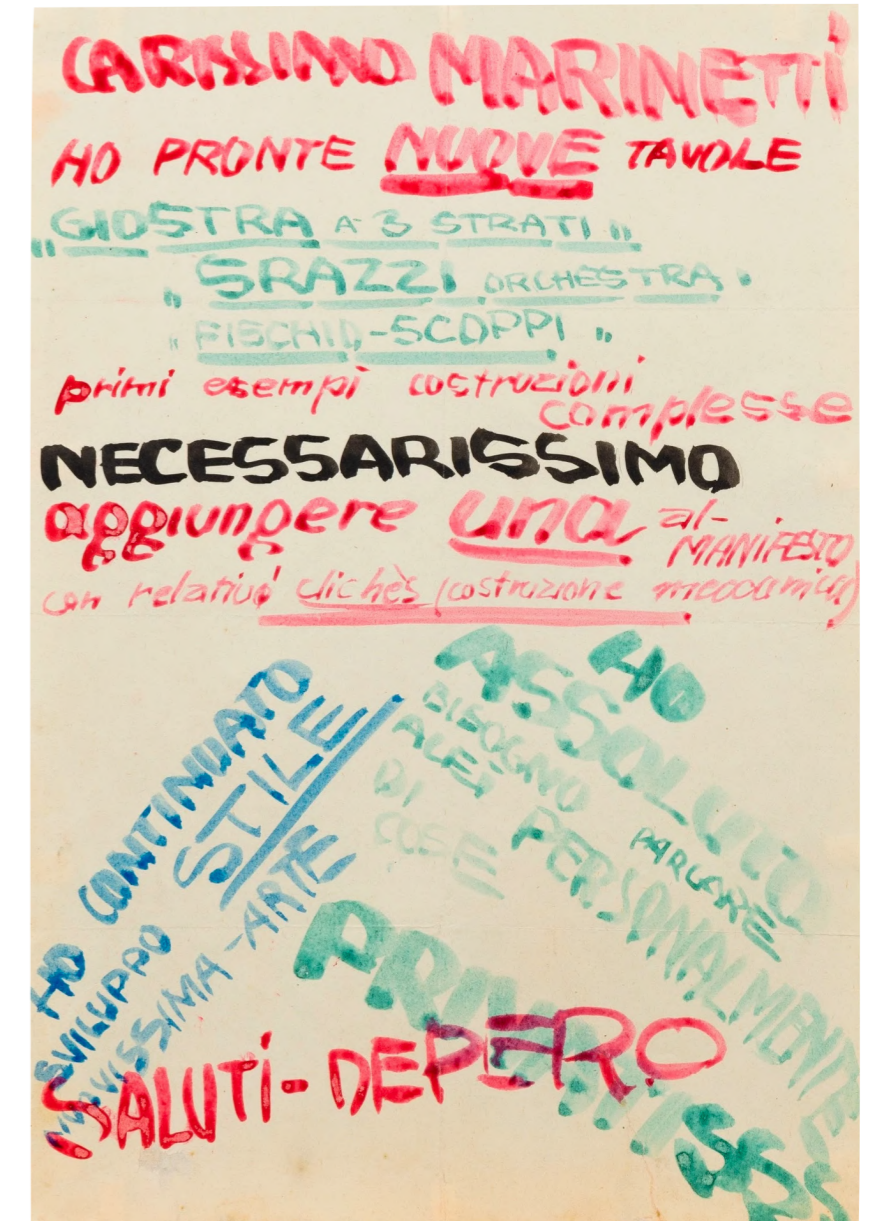 CARISSIMO MARINETTI
HO PRONTE NUOVE TAVOLE
„GIOSTRA A 3 STRATI„
„SRAZZI ORCHESTRA„
„FISCHIO-SCOPPI„
primi esempi costruzioni
complesse
NECESSARISSIMO
aggiungere una al-
MANIFESTO
con relativo clichès (costruzione
HO CONTINUATO
SVILUPPO STILE
NUOVISSIMA-ARTE
HO
ASSOLUTO
BISOGNO
PARLARE
PERSONALMENTE
DI
COSE
SALUTI-DEPERO